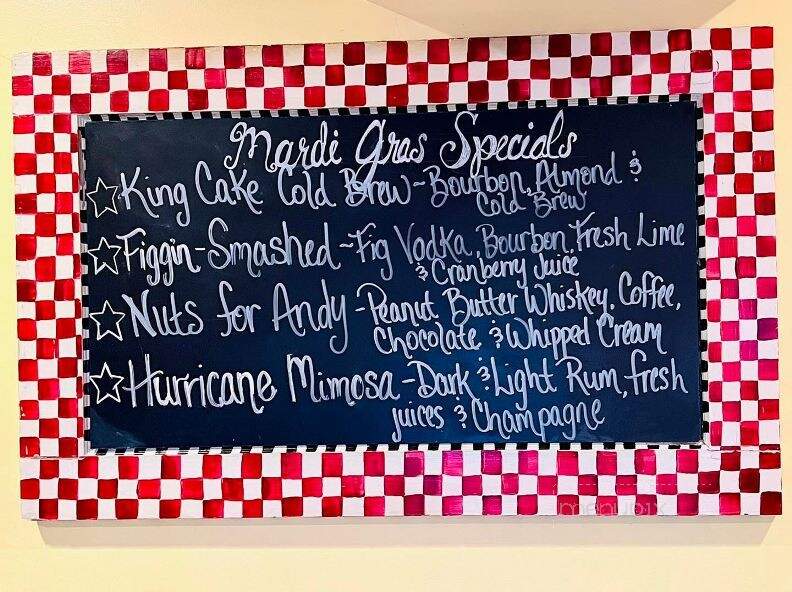 Mardi Gras Specials
King Cake Cold Brew - Bourbon, Almond &
Cold Brew
Figgin-Smashed - Fig Vodka, Bourbon, Fresh Lime
& Cranberry Juice
Nuts for Andy - Peanut Butter Whiskey, Coffee,
Chocolate & Whipped Cream
Hurricane Mimosa - Dark & Light Rum, fresh
juices & Champagne
menupix